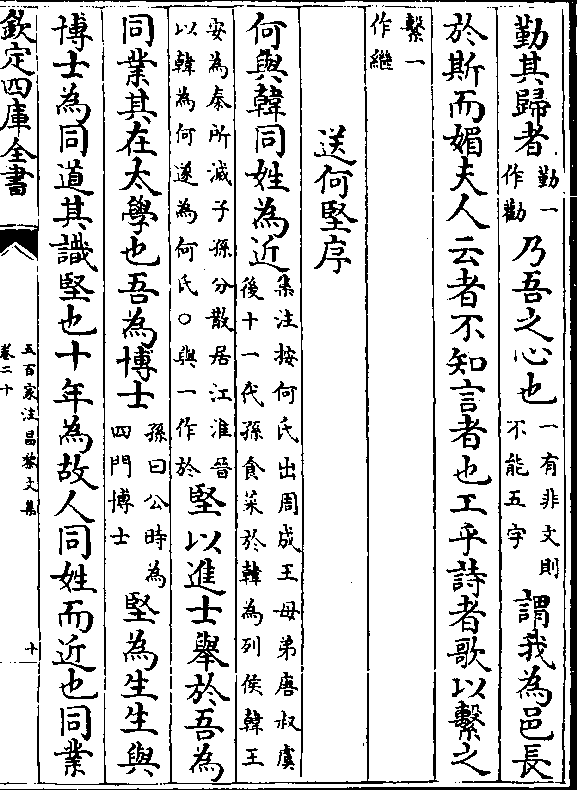 勤其歸者勤一作勸乃吾之心也一有非文則不能五字謂我為邑長
於斯而媚夫人云者不知言者也工乎詩者歌以繫之
繫一作繼
送何堅序
何與韓同姓為近集注按何氏出周成王母弟唐叔虞後十一代孫食菜於韓為列侯韓王
安為秦所滅子孫分散居江淮晉以韓為何遂為何氏○與一作於堅以進士舉於吾為
同業其在太學也吾為博士孫曰公時為四門博士堅為生生與
博士為同道其識堅也十年為故人同姓而近也同業
欽定四庫全書
五百家注昌黎文集
卷二十
十